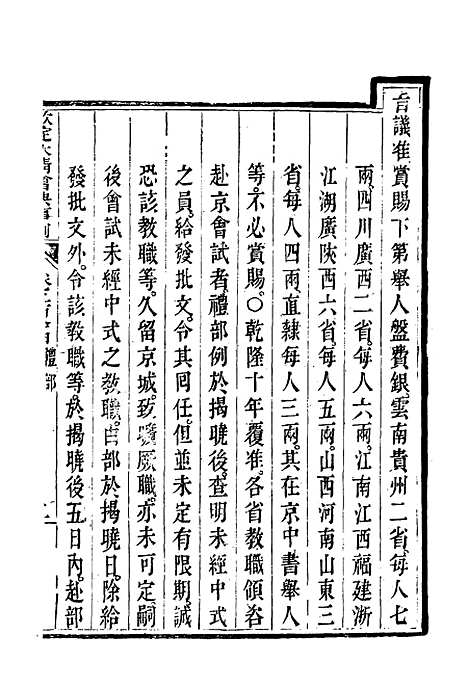 旨議准賞賜下第舉人盤費銀雲南貴州二省每人七
兩四川廣西二省每人六兩江南江西福建浙
江湖廣陝西六省每人五兩山西河南山東三
省每人四兩直隸每人三兩其在京中書舉人
等不必賞賜○乾隆十年覆准各省教職領咨
赴京會試者禮部例於揭曉後查明未經中式
之員給發批文令其回任但並未定有限期誠
恐該教職等久留京城致曠厥職亦未可定嗣
後會試未經中式之教職由部於揭曉日除給
發批文外令該教職等於揭曉後五日內赴部
欽定大清會典事例
禮部